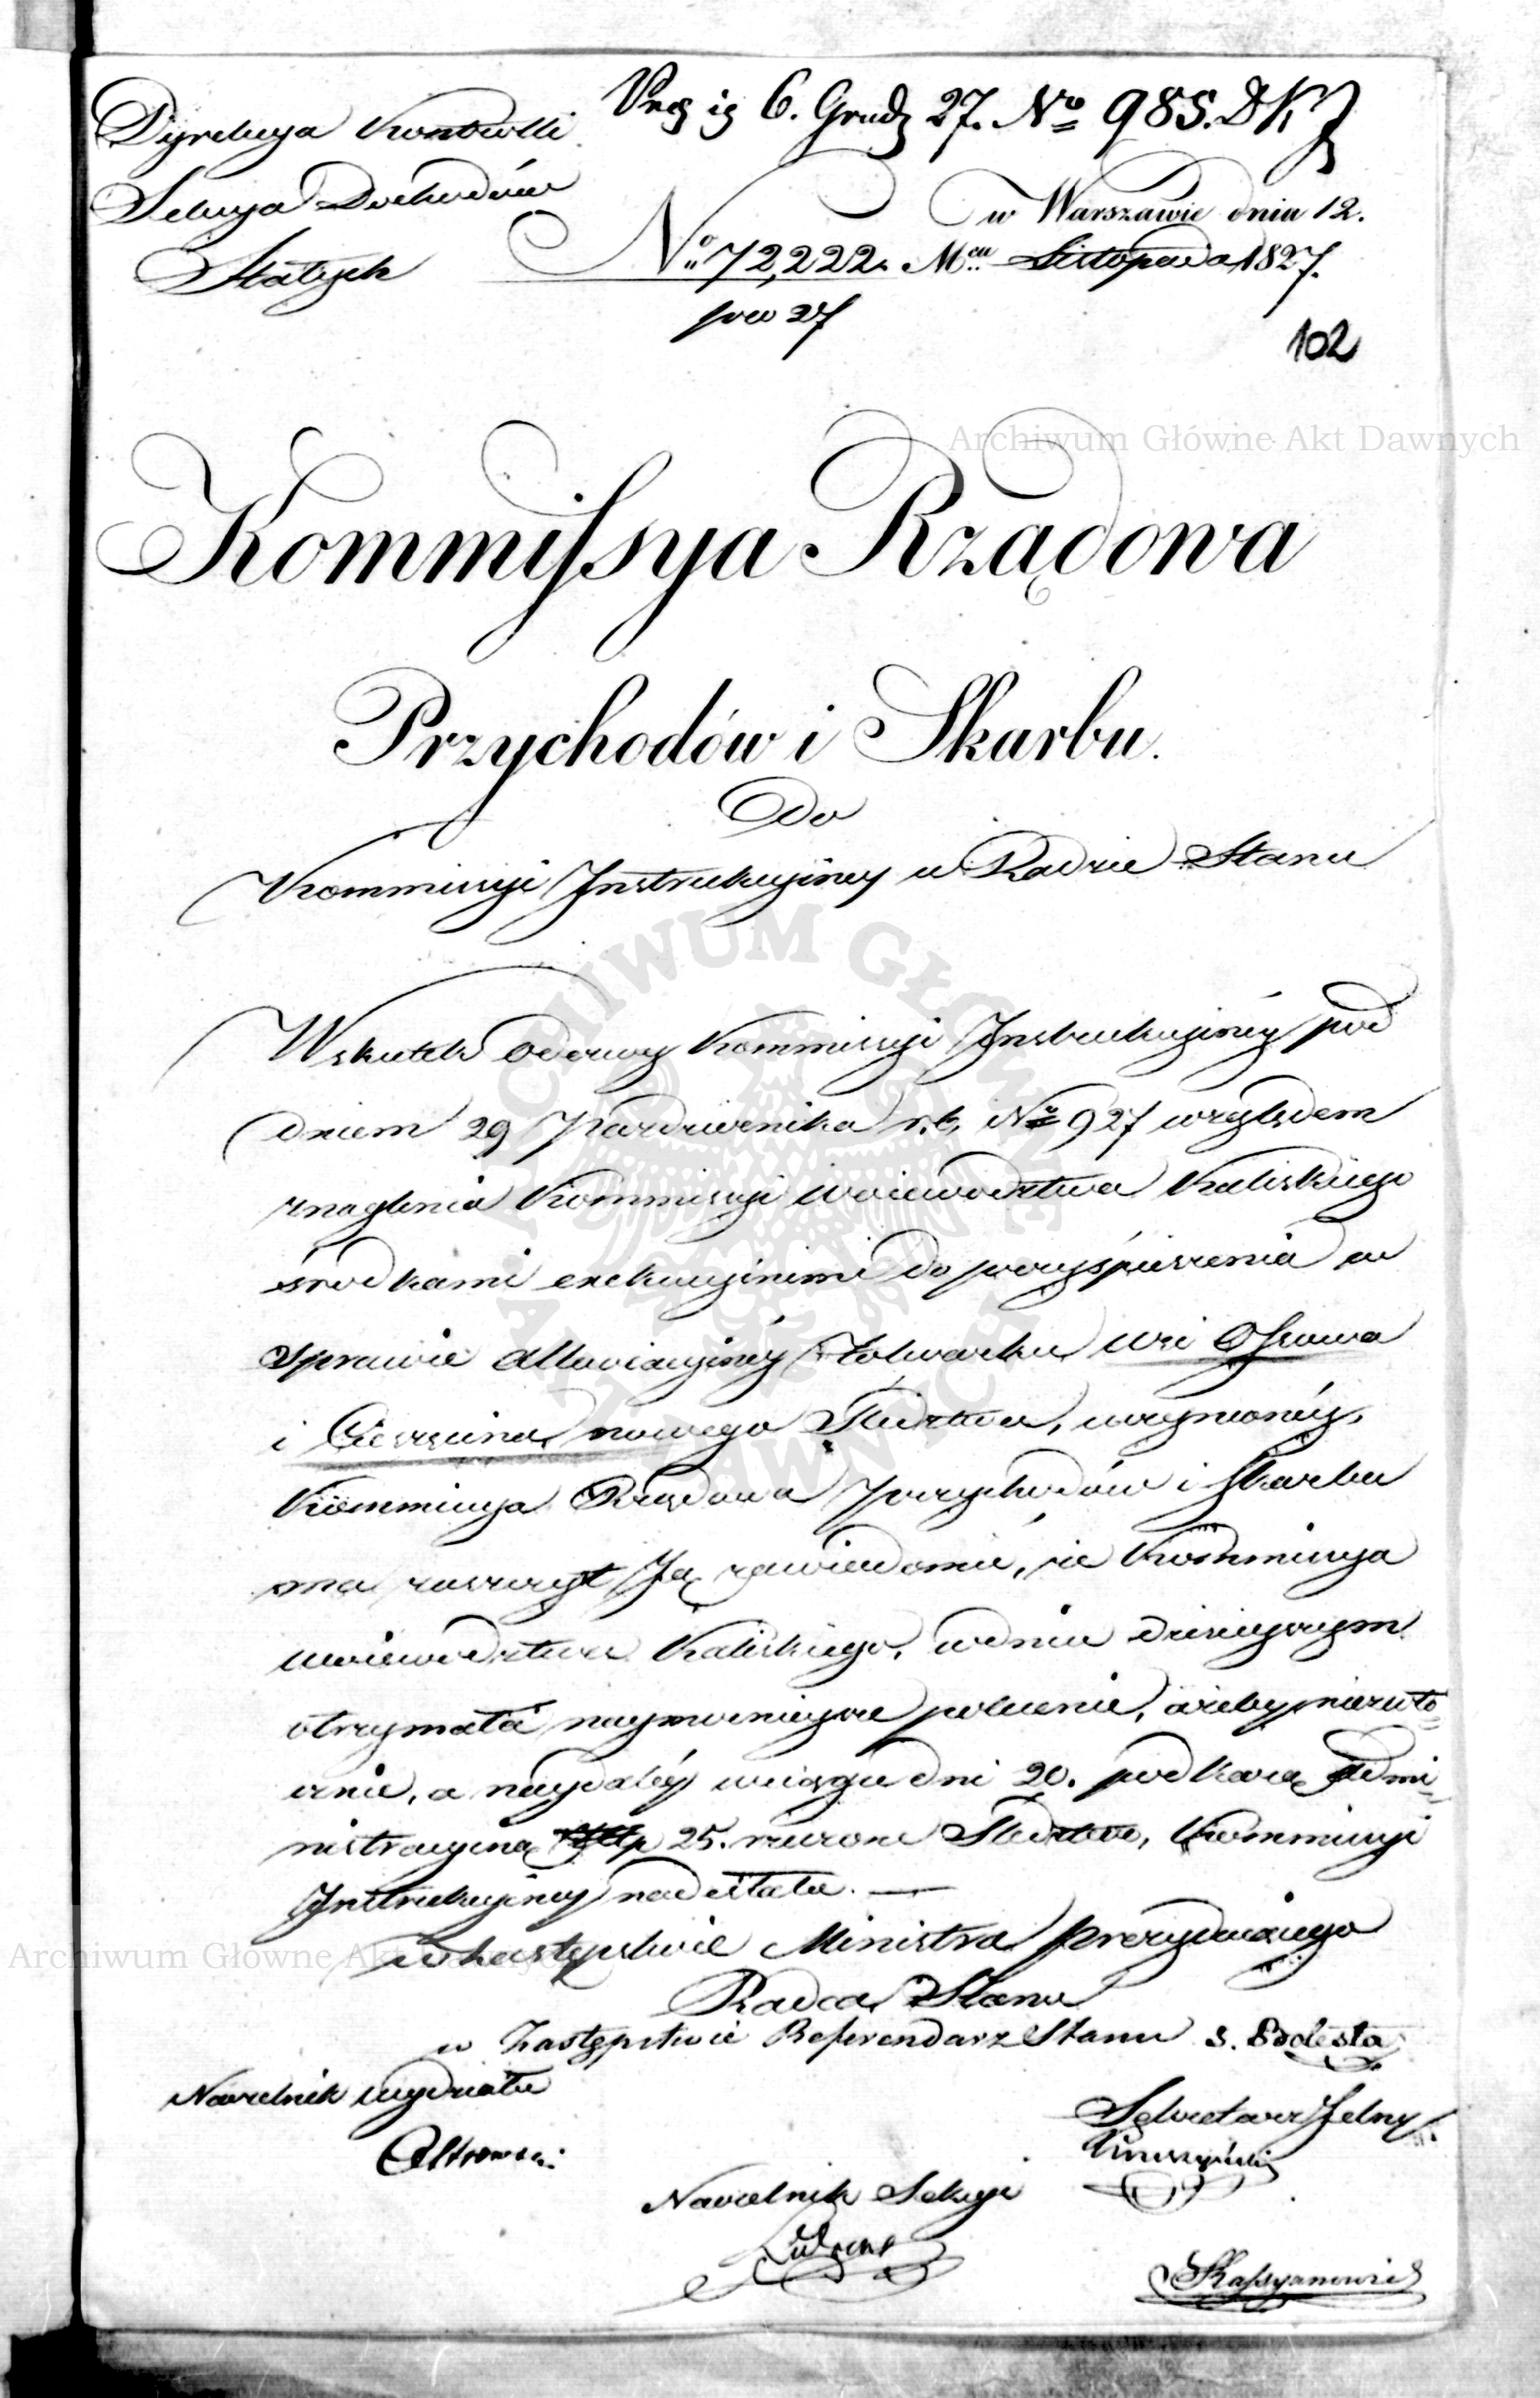 Dyrekcya Kontrolli
Sekcya Dochodów
Stałych
6. Grud 27. No 985. DK
w Warszawie dnia 12.
No 72,222. Mca Listopada 1827.
pro 27
102
Archiwum Główne Akt Dawnych
Kommissya Rządowa
Przychodów i Skarbu.
Do
Kommissyi Instrukcyiney w Radzie Stanu
Wskutek Odezwy Kommissyi Instrukcyinéy pod
dniem 29 Pazdziernika r.b. No 927 względem
znaglenia Kommissyi Woiewodztwa Kaliskiego
srodkami exekucyinimi do przyśpieszenia w
sprawie Alluwiacyinéy folwarku wsi Osowa
i Cieszcina nowego Sledztwa, wszynionéy,
Kommissya Rządowa Przychodów i Skarbu
ma zaszczyt Ją zawiadomić, że Kommissya
Woiewodztwa Kaliskiego, w dniu dzisieyszym
otrzymała naymocnieysze polecenie, ażeby niezwło-
cznie, a naydaléy w ciągu dni 20. pod karą Admi-
nistracyiną 25. rzeczone Sledztwo, Kommissyi
Instrukcyiney nadesłała. —
w Zastępstwie Ministra Prezyduiącego
Radca Stanu
w Zastępstwie Referendarz Stanu
Naczelnik Wydziału
Sekretarz Jelny
Naczelnik Sekcyi
Archiwum Główne Akt Dawnych
ARCHIWUM GŁÓWNE AKT DAWNYCH